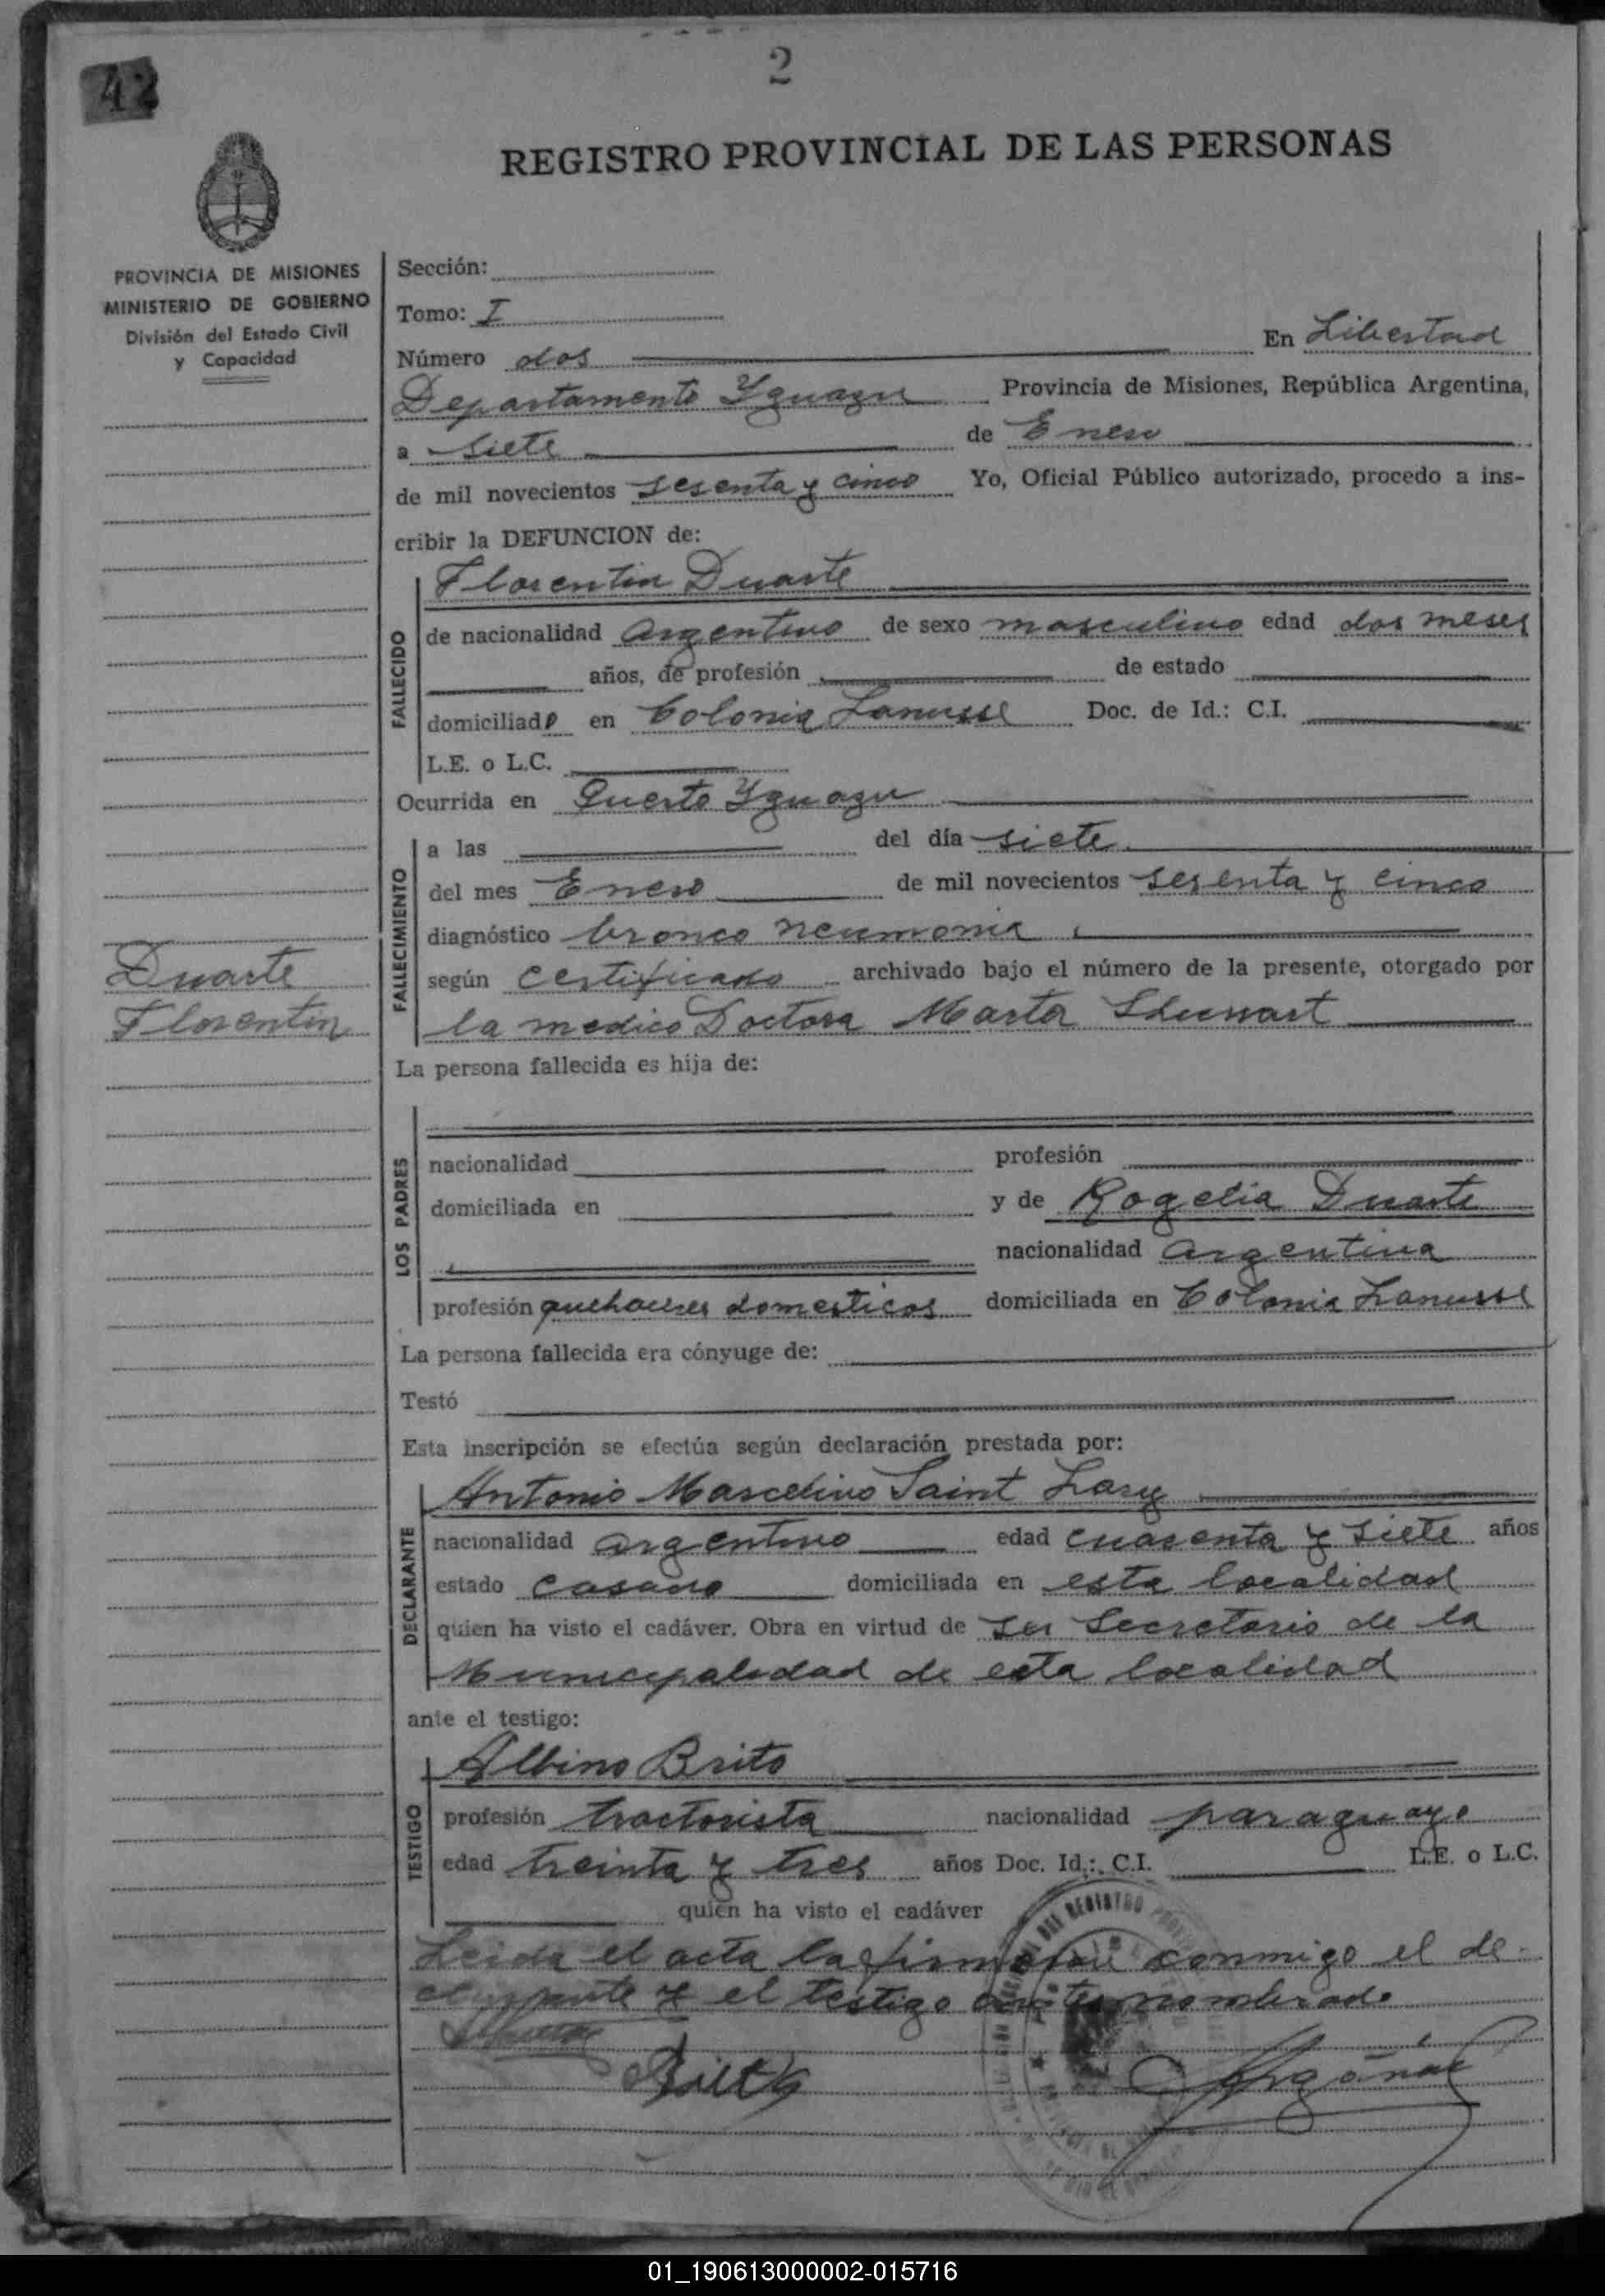 2
42
REGISTRO PROVINCIAL DE LAS PERSONAS
PROVINCIA DE MISIONES
MINISTERIO DE GOBIERNO
División del Estado Civil
y Capacidad
Sección:
Tomo: I
Número dos En Libertad
Departamento Yguazu Provincia de Misiones, República Argentina,
a siete de Enero
de mil novecientos sesenta y cinco Yo, Oficial Público autorizado, procedo a ins-
cribir la DEFUNCION de:
FALLECIDO
Florentin Duarte
de nacionalidad argentino de sexo masculino edad dos meses
años, de profesión de estado
domiciliado en Colonia Lanusse Doc. de Id.: C.I.
L.E. o L.C.
Ocurrida en Puerto Yguazu
FALLECIMIENTO
a las del día siete
del mes Enero de mil novecientos sesenta y cinco
diagnóstico bronco neumonia
según certificado archivado bajo el número de la presente, otorgado por
la medico Doctora Marta
Duarte
Florentin
La persona fallecida es hija de:
LOS PADRES
nacionalidad profesión
domiciliada en y de Rogelia Duarte
nacionalidad argentina
profesión quehaceres domesticos domiciliada en Colonia Lanusse
La persona fallecida era cónyuge de:
Testó
Esta inscripción se efectúa según declaración prestada por:
DECLARANTE
Antonio Marcelino Saint Lary
nacionalidad argentino edad cuarenta y siete años
estado casado domiciliada en esta localidad
quien ha visto el cadáver. Obra en virtud de ser Secretario de la
Municipalidad de esta localidad
ante el testigo:
TESTIGO
Albino Brito
profesión tractorista nacionalidad paraguayo
edad treinta y tres años Doc. Id.: C.I. L.E. o L.C.
quien ha visto el cadáver
Leida el acta la firmaron conmigo el de-
clarante y el testigo antes nombrado
01_190613000002-015716